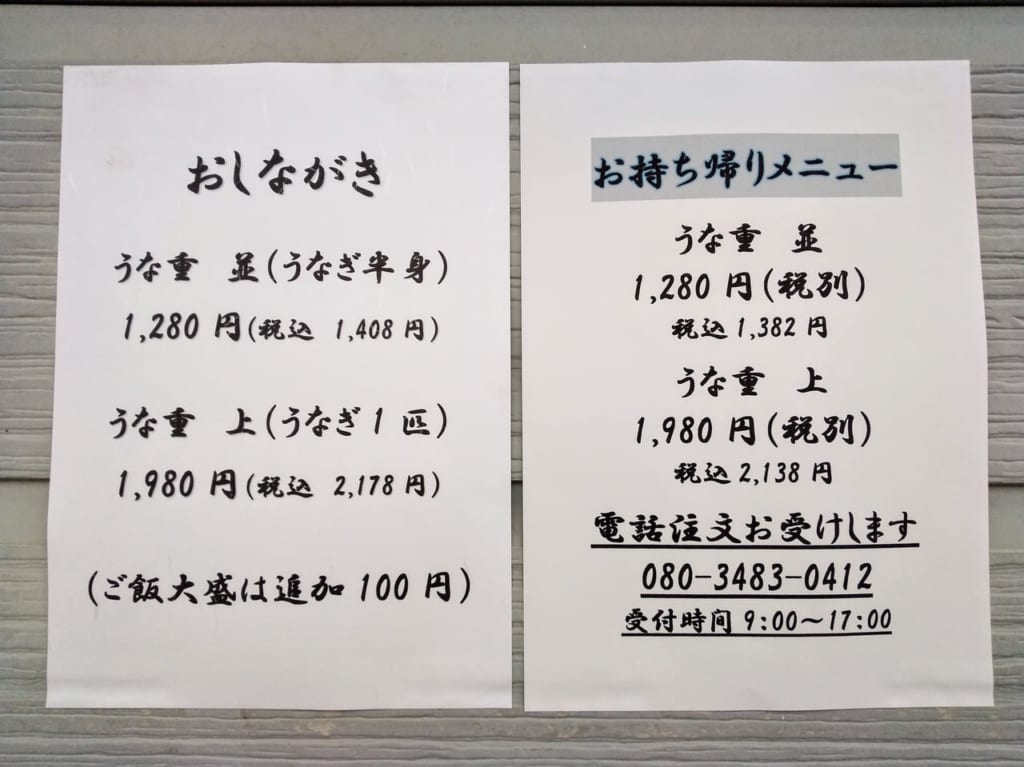 おしながき
うな重　並(うなぎ半身)
1,280 円(税込　1,408 円)
うな重　上(うなぎ1匹)
1,980 円(税込　2,178 円)
(ご飯大盛は追加 100 円)
お持ち帰りメニュー
うな重　並
1,280 円(税別)
税込 1,382 円
うな重　上
1,980 円(税別)
税込 2,138 円
電話注文お受けします
080-3483-0412
受付時間 9:00～17:00